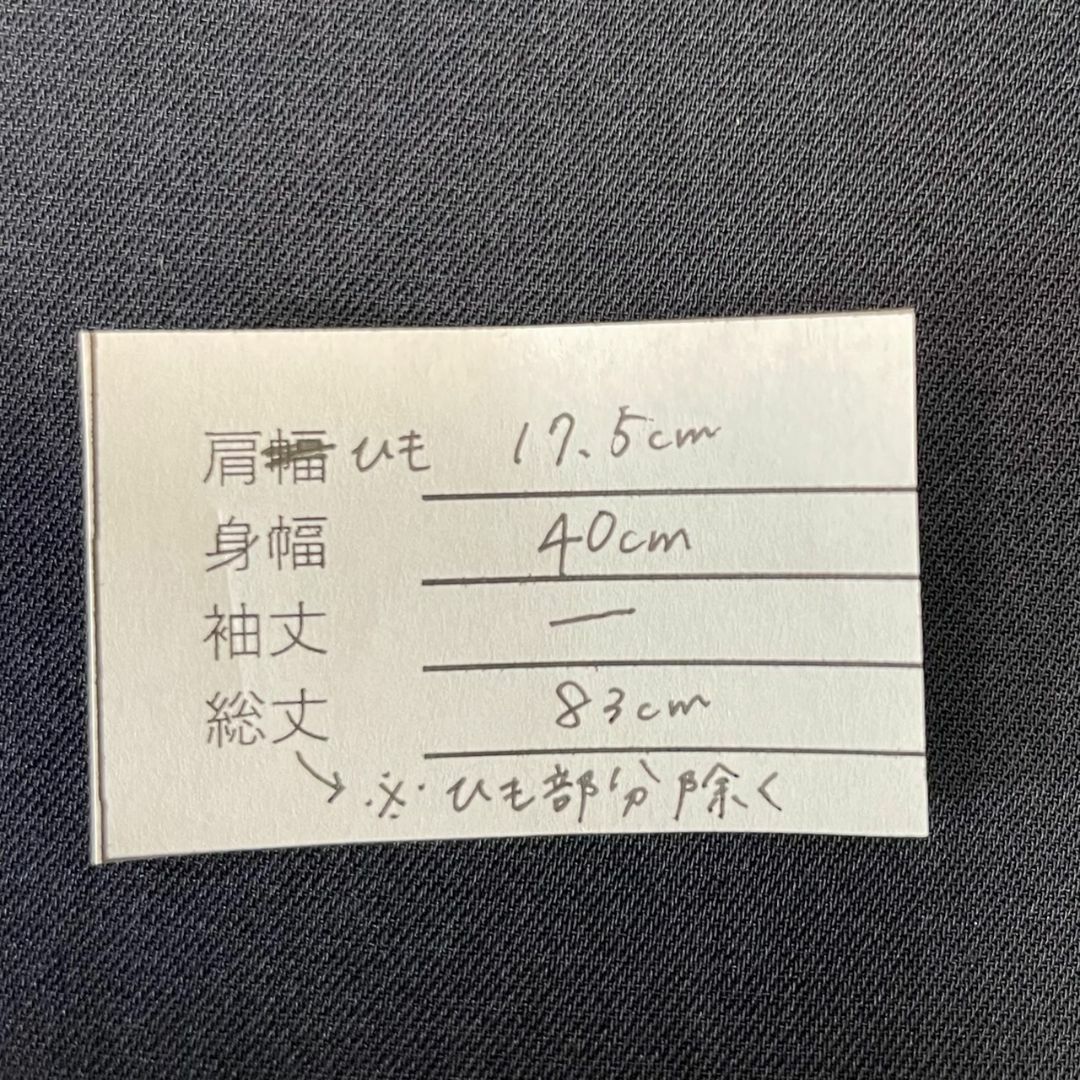 肩幅 ひも 17.5cm
身幅 40cm
袖丈 ー
総丈 83cm
→ ※ひも部分除く